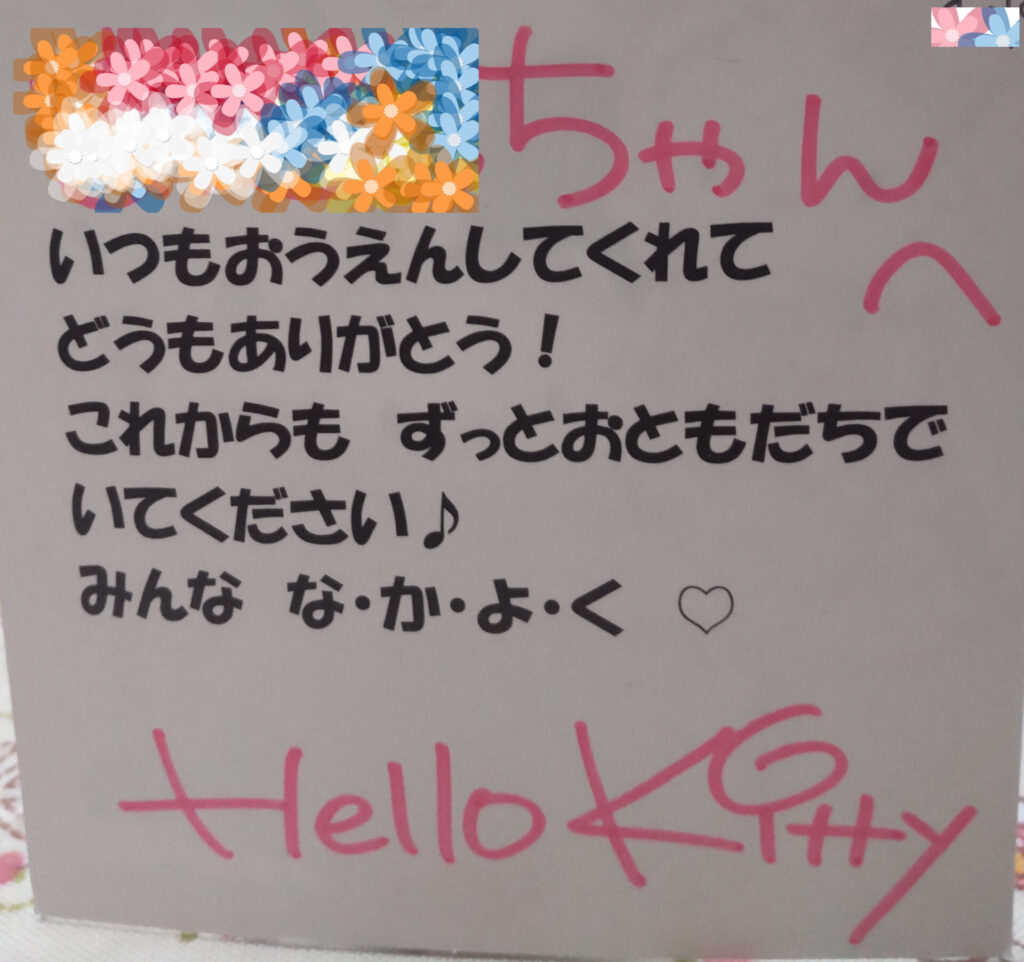 ちゃん
へ
いつもおうえんしてくれて
どうもありがとう！
これからも ずっとおともだちで
いてください♪
みんな な・か・よ・く ♡
Hello Kitty